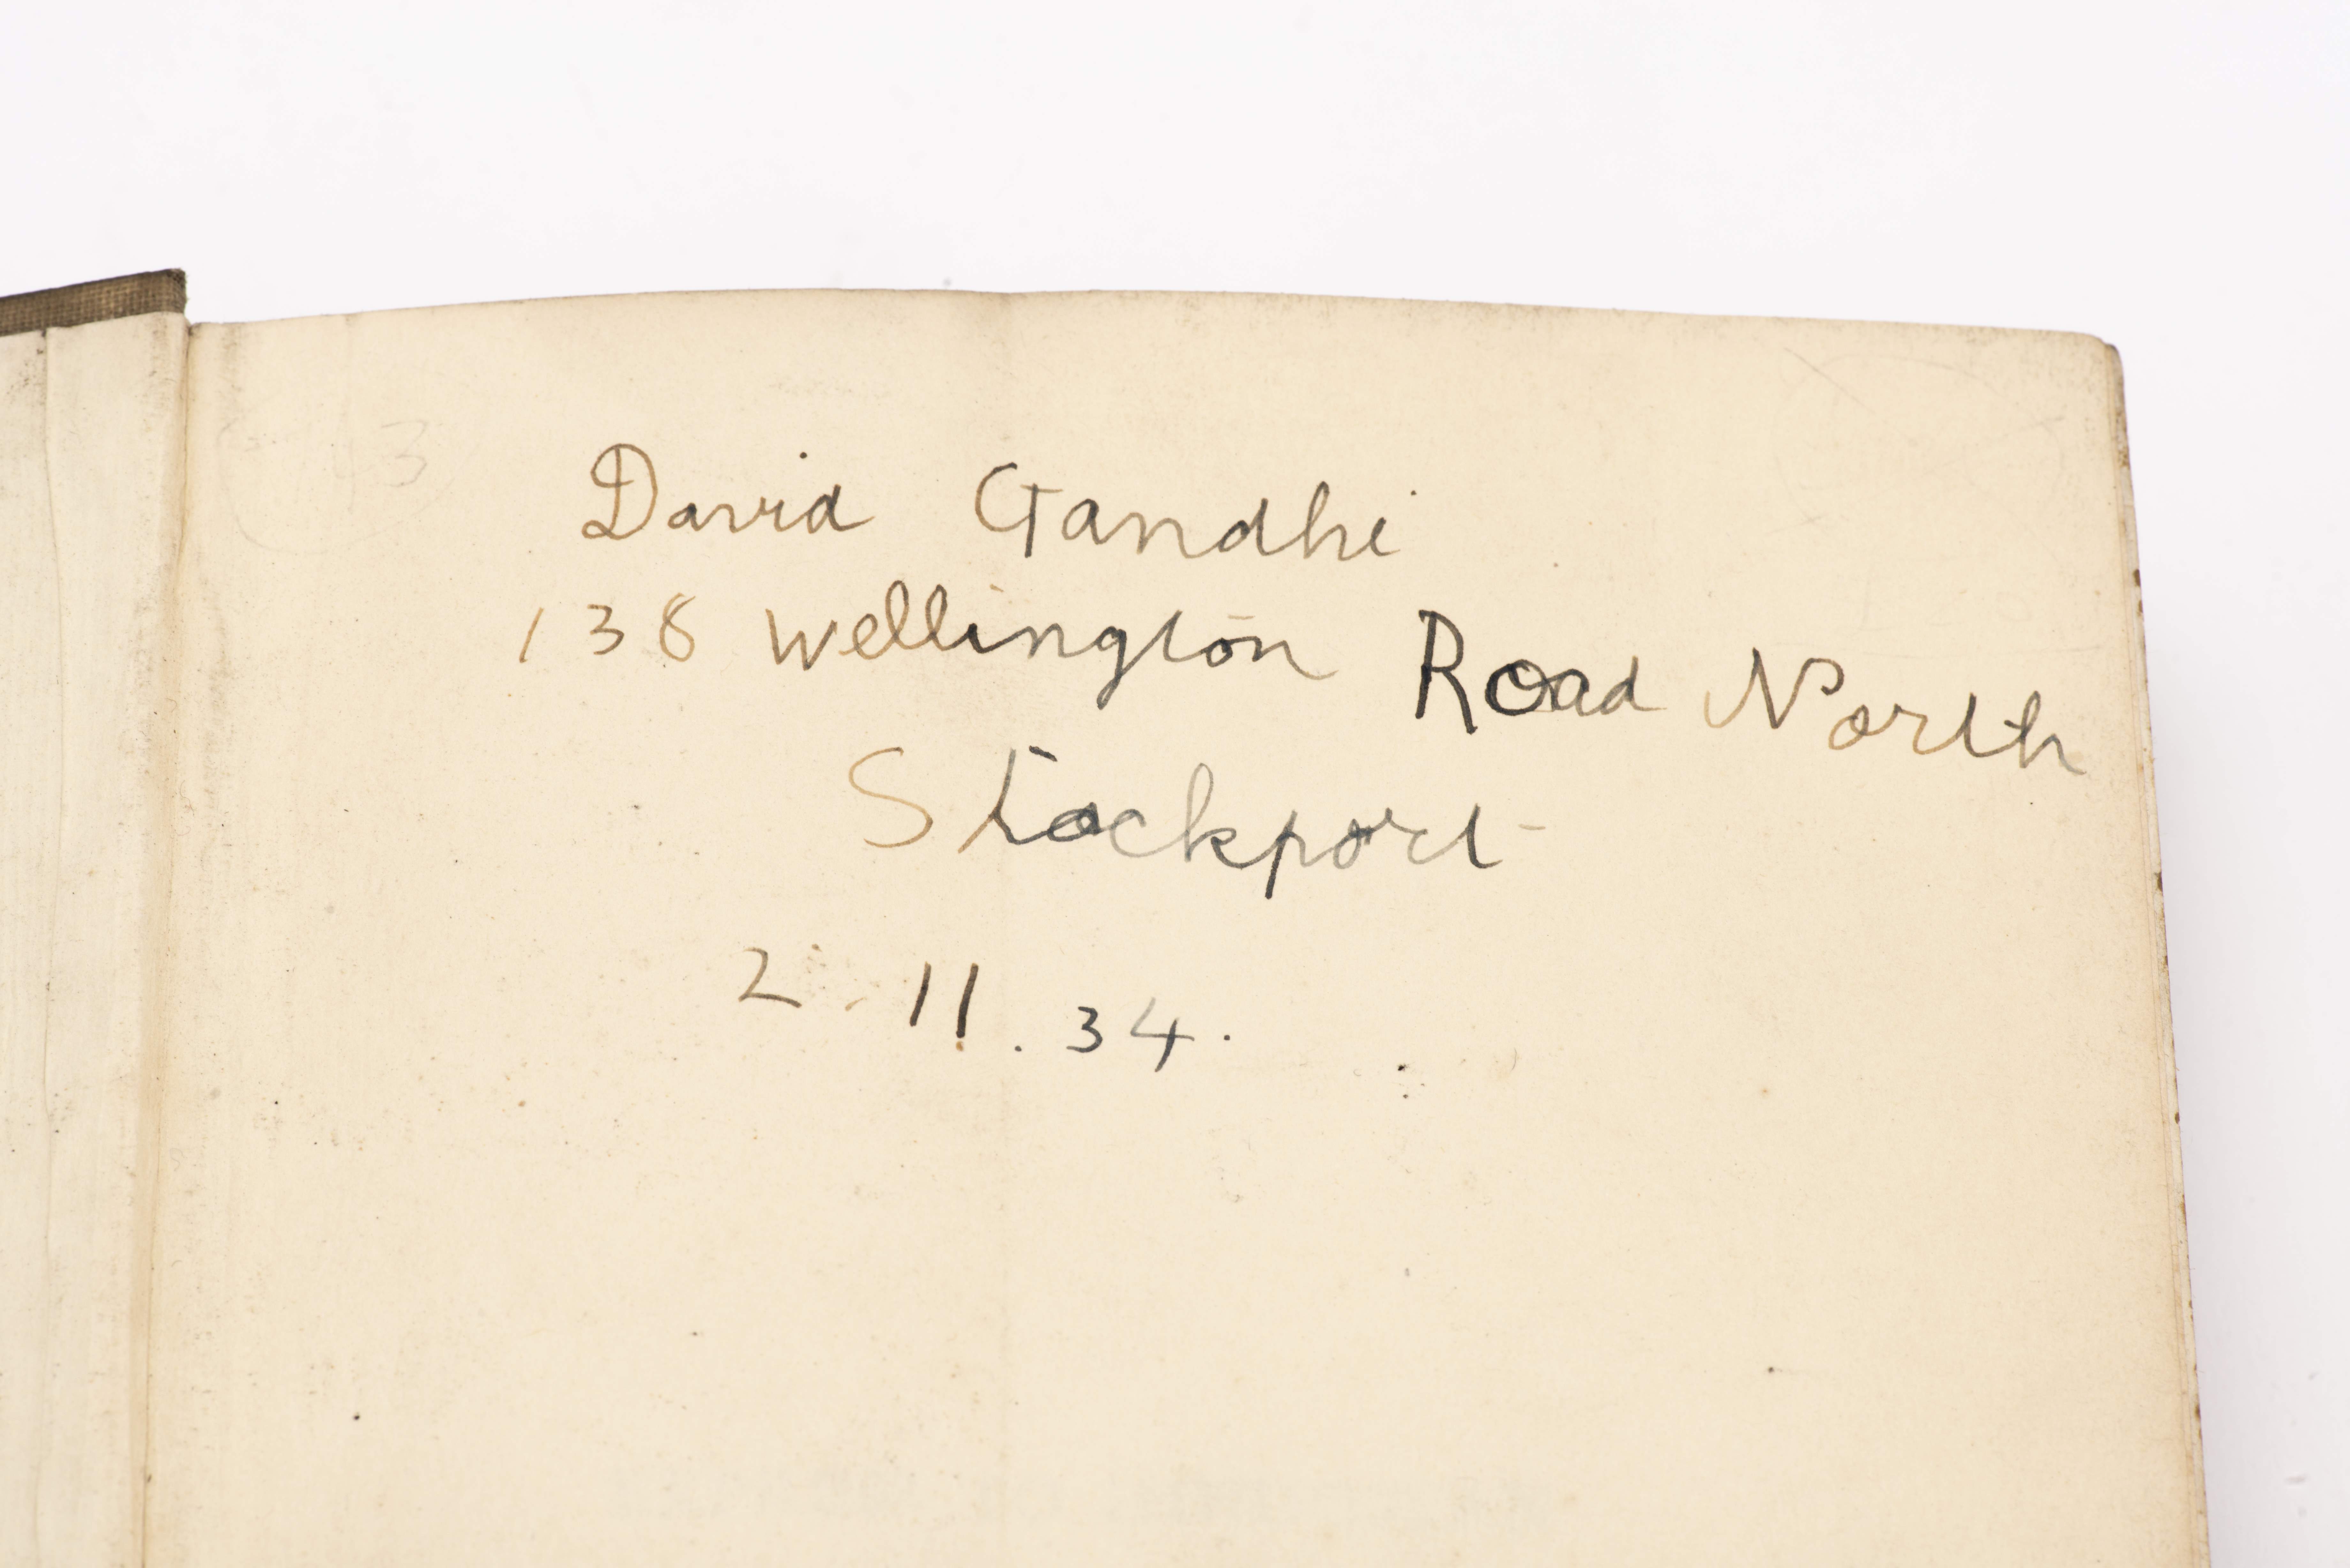 David Gandhi
138 Wellington Road North
Stockport
2. 11. 34.